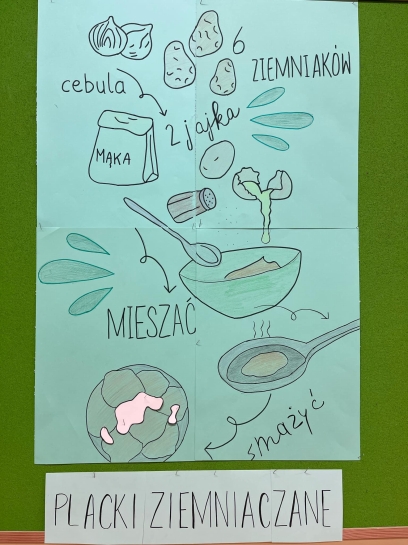 6
ZIEMNIAKÓW
cebula
2 jajka
MĄKA
MIESZAĆ
smażyć
PLACKI ZIEMNIACZANE